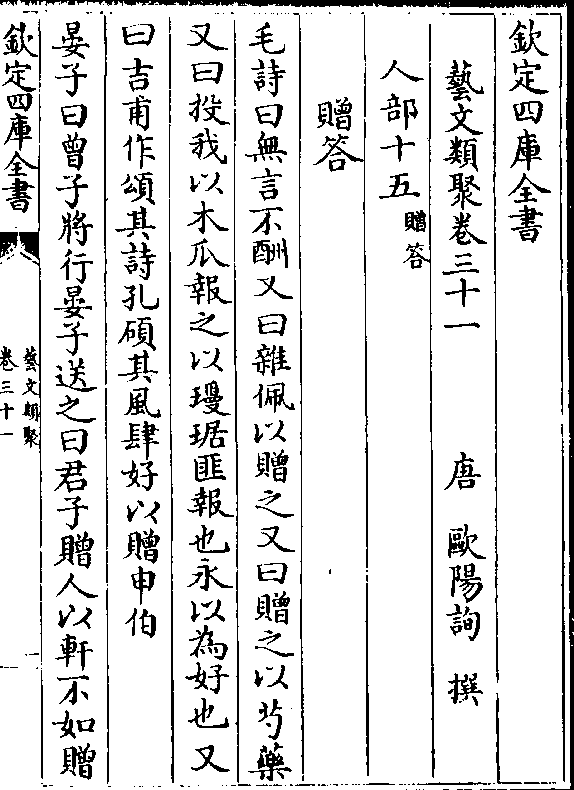 欽定四庫全書
藝文類聚卷三十一
唐 歐陽詢 撰
人部十五 贈答
贈答
毛詩曰無言不酬又曰雜佩以贈之又曰贈之以芍藥
又曰投我以木瓜報之以瓊琚匪報也永以為好也又
曰吉甫作頌其詩孔碩其風肆好以贈申伯
晏子曰曾子將行晏子送之曰君子贈人以軒不如贈
欽定四庫全書
藝文類聚
卷三十一
一